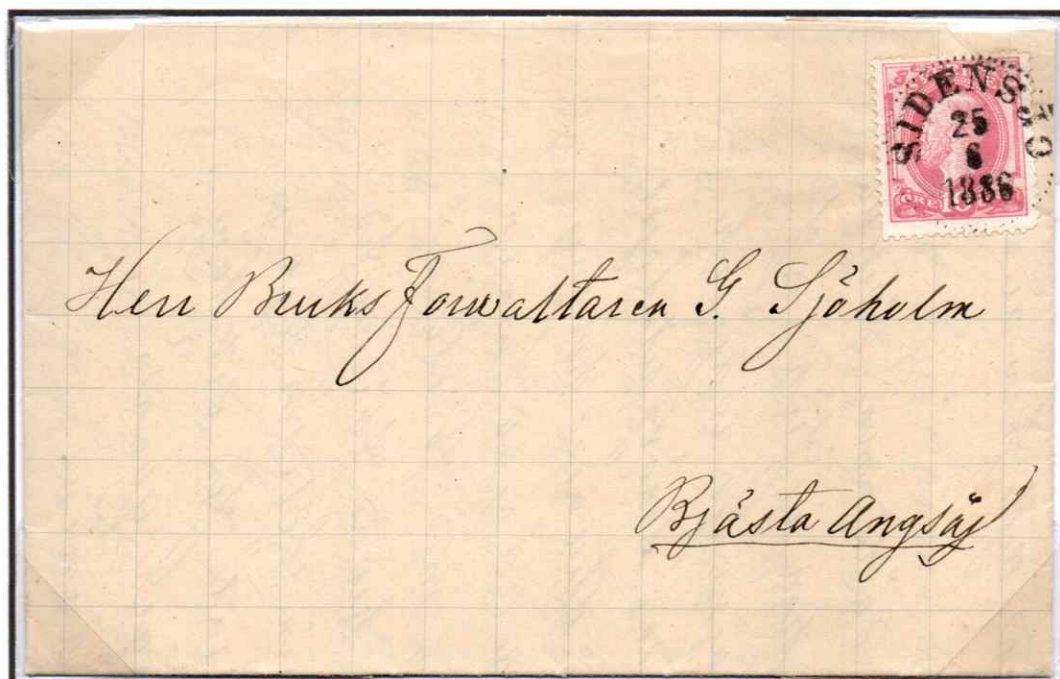 SIDENSJÖ
25
6
1886
ÖRE
Herr Bruks Förvaltaren G. Sjöholm
Bjästa Ångsåg